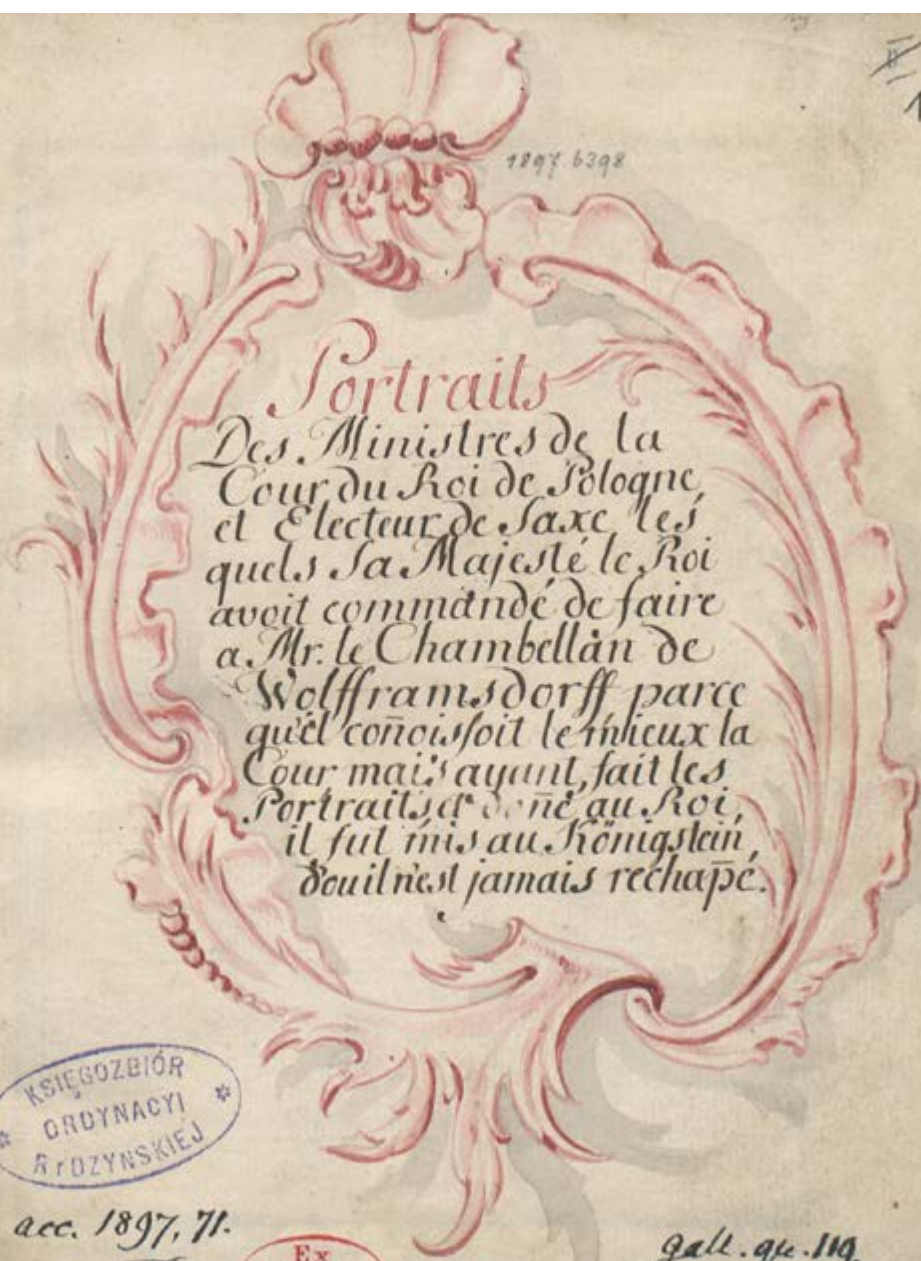 1897.6398
Portraits
Des Ministres de la
Cour du Roi de Pologne,
et Electeur de Saxe les
quels Sa Majesté le Roi
avoit commandé de faire
a Mr. le Chambellan de
Wolfframsdorff parce
qu'el coñoissoit le mieux la
Cour mais ayant fait les
Portraits et doñé au Roi,
il fut mis au Königstein,
d'ou il n'est jamais rechapé.
KSIĘGOZBIÓR
ORDYNACYI
RYDZYNSKIEJ
acc. 1897, 71.
Ex
gall. qu. 119